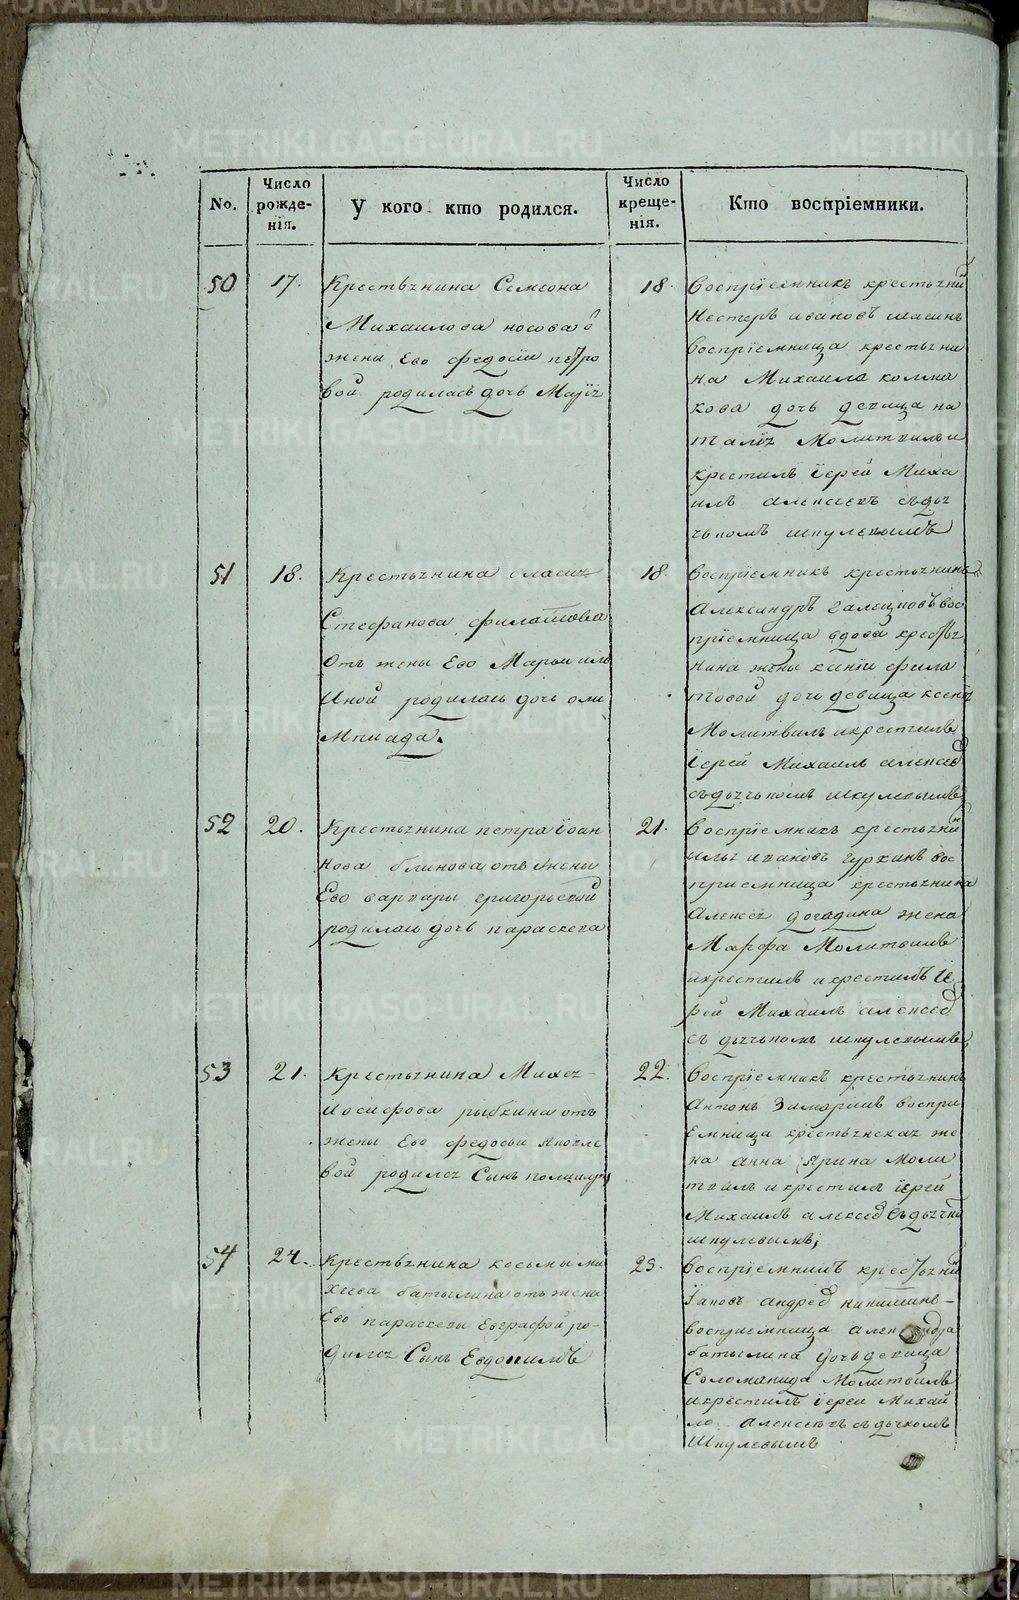 No.
Число рожде-нія.
У кого кто родился.
Число креще-нія.
Кто воспріемники.
50
17.
Крестьянина Симеона
Михаилова носова ѿ
жены Ево федосіи петро
вой родилась дочь Маріѧ
18.
Воспріемникъ крестьянин
Нестеръ ивановъ
воспріемница крестьяни
на Михаила колма
кова дочь девица на
таліѧ Молитвилъ и
крестилъ їерей Миха
илъ алексеевъ съ дья
чькомъ шпулевымъ
51
18.
Крестьянина
Стефанова филатова
Отъ жены Ево Марьи иль
иной родилась дочь оли
Мпиада.
18.
Воспріемникъ крестьянинъ
Александръ галециховъ вос
пріемница вдова крестья
нина жены ксеніи фила
товой дочь девица ксеніѧ
Молитвилъ и крестилъ
їерей Михаилъ алексеев
съ дьячькомъ шпулевымъ
52
20.
Крестьянина петра їоан
нова блинова отъ жены
Ево варвары григорьевой
родилась дочь параскева
21.
Воспріемникъ крестьянин
ильѧ ивановъ гуркинъ вос
приемница крестьянина
Алексеѧ догадина жена
Марфа Молитвилъ
икрестилъ икрестилъ їе
рей Михаилъ алексеев
съ дьячькомъ шпулевымъ
53
21.
Крестьянина Михеѧ
иосифова рыбкина отъ
жены Ево федосьи яковле
вой родилсѧ Сынъ
22.
Воспріемникъ крестьянинъ
Антонъ воспри
емница крестьянскаѧ же
на анна Ярина Моли
твилъ и крестилъ їерей
Михаилъ алексеев съ дьячко
шпулевымъ;
54
24.
Крестьянина косьмы ми
хеева батылина отъ жены
Ево параскевы Евграфовой ро-
дилсѧ Сынъ Евдокимъ
25.
Воспріемникъ крестьянин
андрей
восприемница александра
батылина дочь девица
Соломанида Молитвилъ
икрестилъ їерей Михай
ло Алексеевъ съ дьячкомъ
Шпулевымъ
METRIKI.GASO-URAL.RU